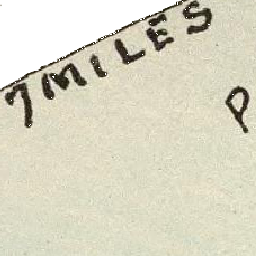 7 MILES
P